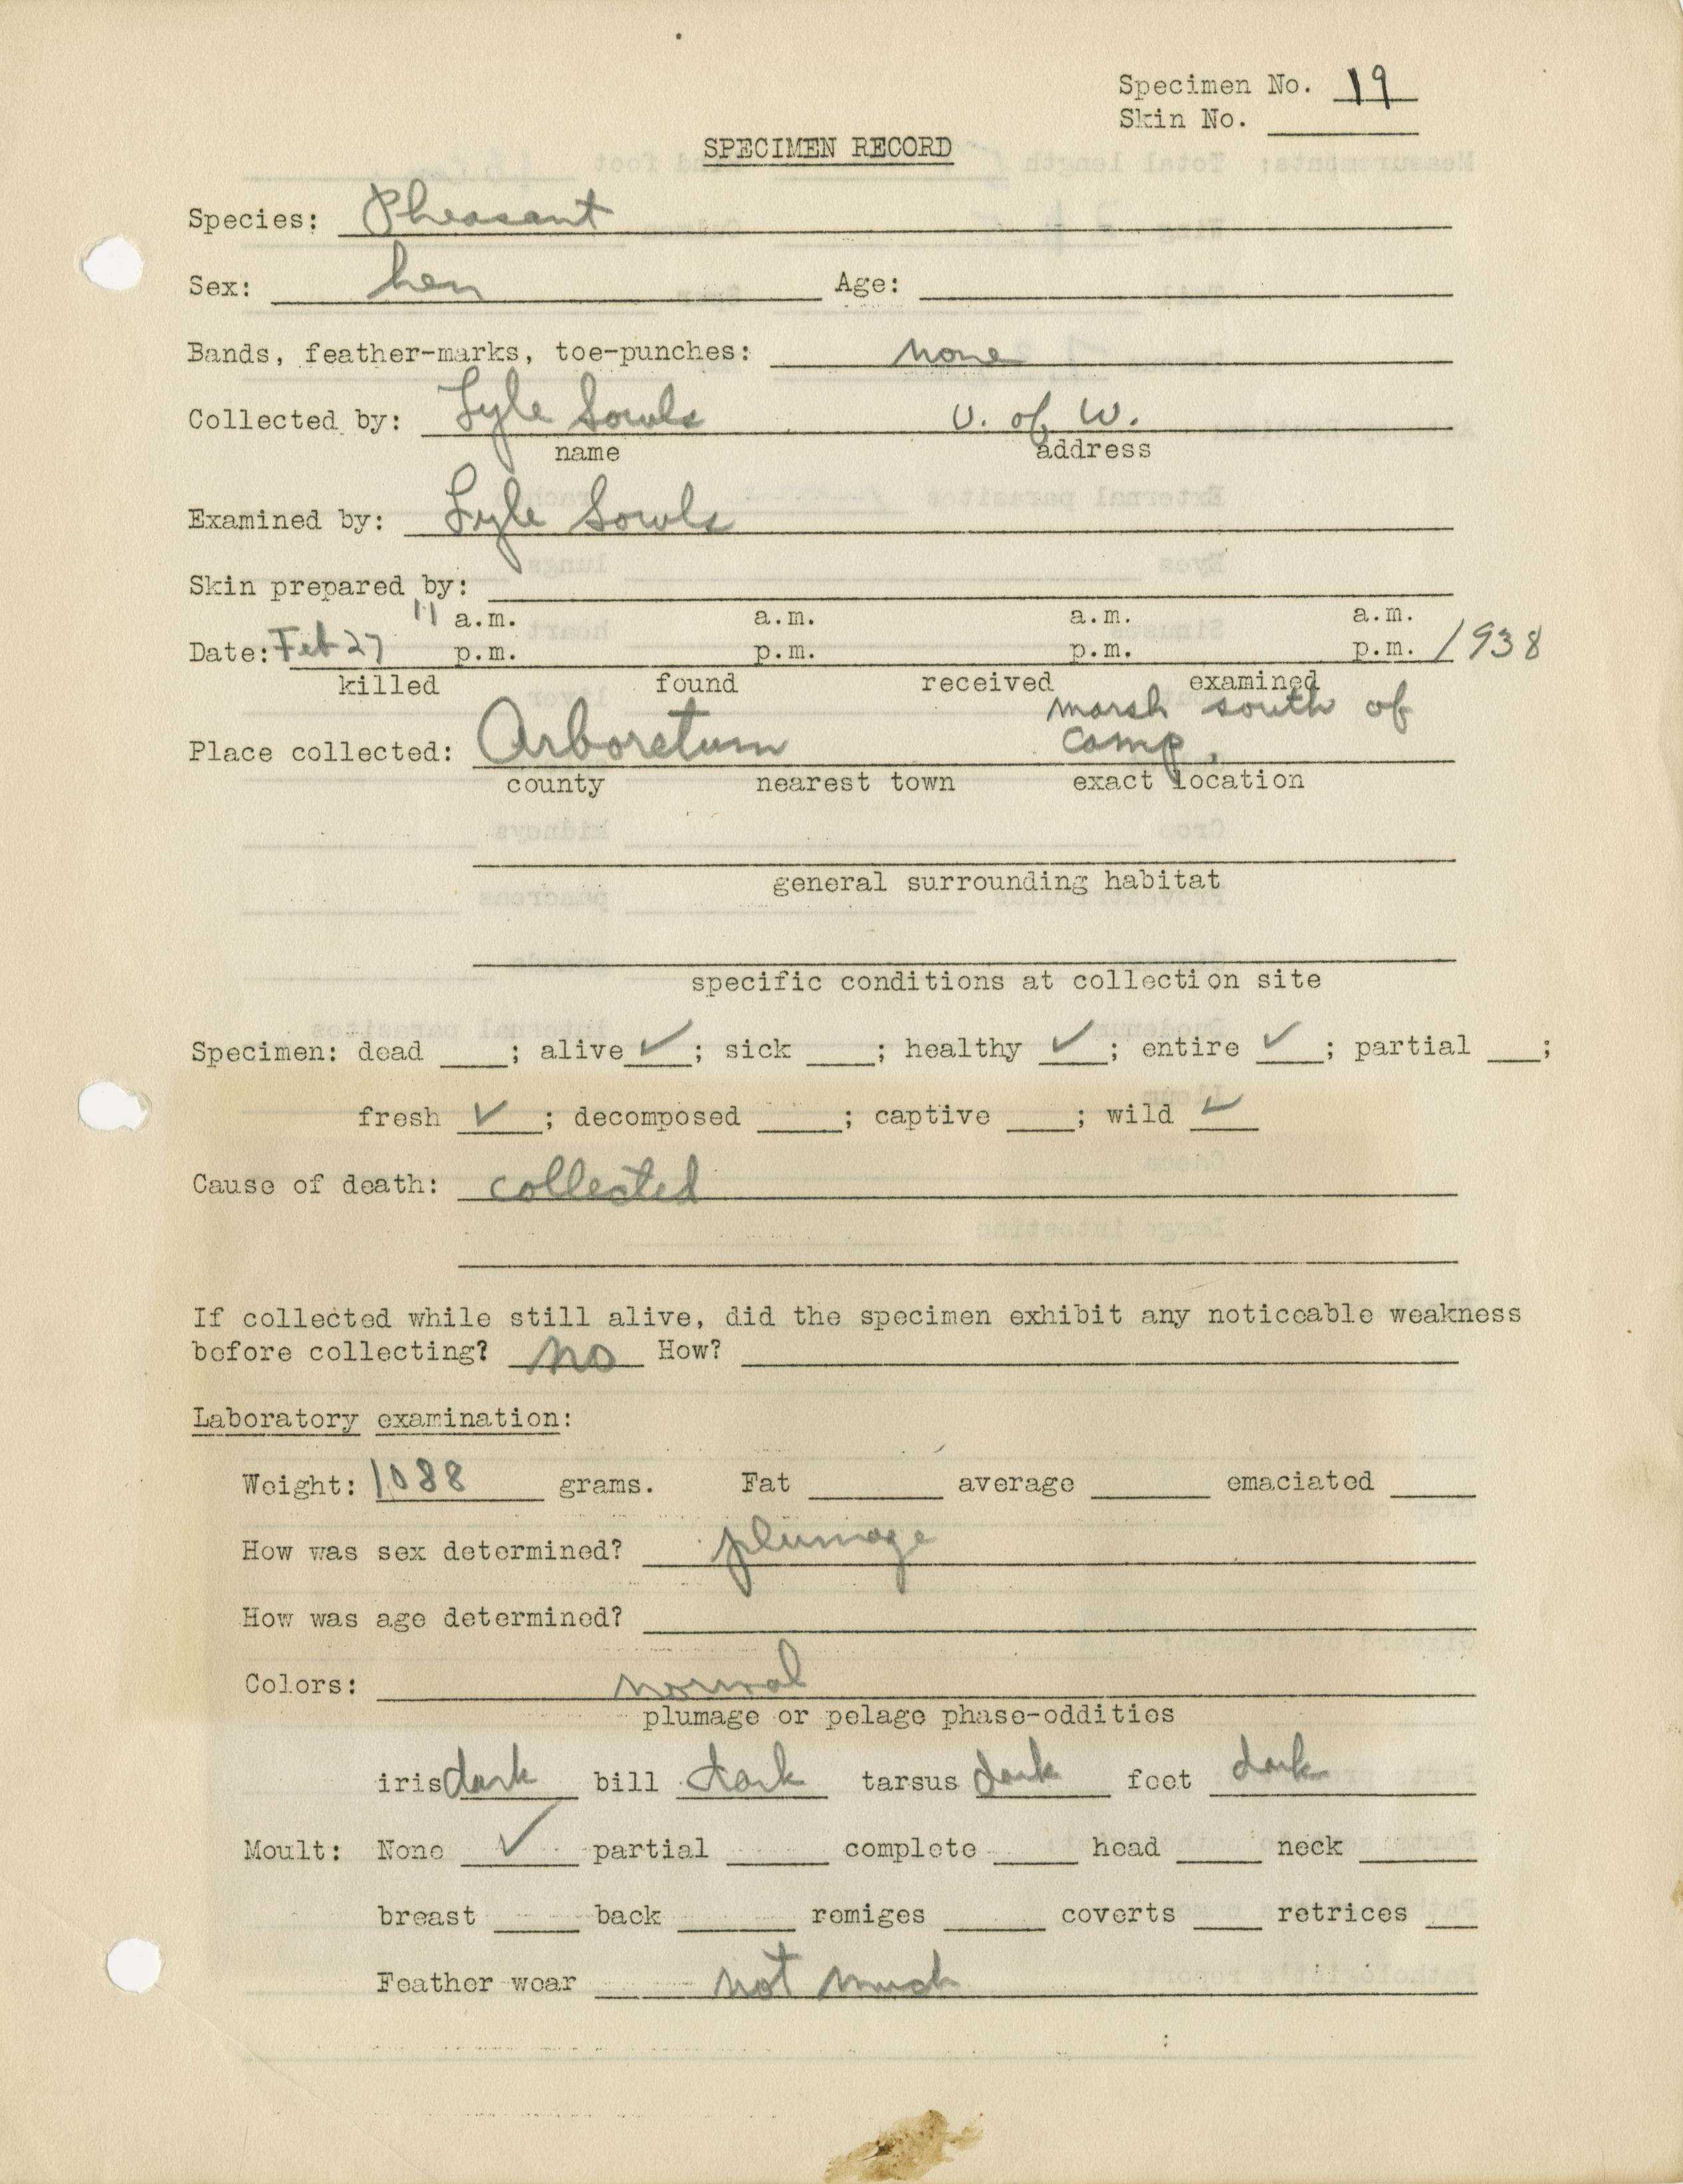 Specimen No. 19
Skin No.
SPECIMEN RECORD
Species: Pheasant
Sex: hen Age:
Bands, feather-marks, toe-punches: none
Collected by: Lyle Sowls U. of W.
name address
Examined by: Lyle Sowls
Skin prepared by:
11 a.m. a.m. a.m. a.m.
Date: Feb 27 p.m. p.m. p.m. p.m. 1938
killed found received examined
marsh south of
Place collected: Arboretum camp.
county nearest town exact location
general surrounding habitat
specific conditions at collection site
Specimen: dead ____; alive ✓; sick ____; healthy ✓; entire ✓; partial ___;
fresh ✓; decomposed ____; captive ____; wild ✓
Cause of death: collected
If collected while still alive, did the specimen exhibit any noticeable weakness
before collecting? no How?
Laboratory examination:
Weight: 1088 grams. Fat ____ average ____ emaciated ____
How was sex determined? plumage
How was age determined?
Colors: normal
plumage or pelage phase-oddities
iris dark bill dark tarsus dark foot dark
Moult: None ✓ partial ____ complete ____ head ____ neck ____
breast ____ back ____ remiges ____ coverts ____ retrices ___
Feather wear not much